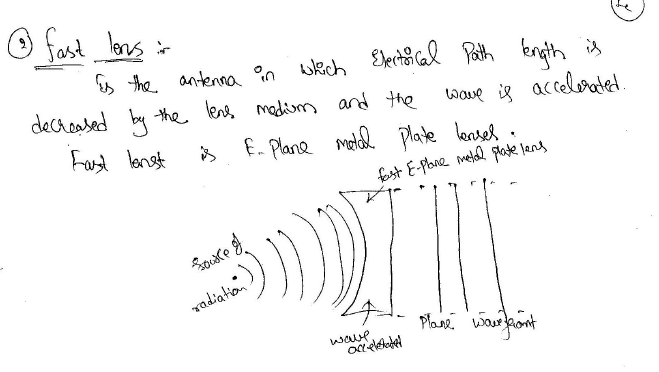 ② fast lens :-
is the antenna in which Electrical Path length is
decreased by the lens medium and the wave is accelerated.
Fast lenst is E-Plane metal Plate lenses.
fast E-plane metal plate lens
source of
radiation
wave
accelerated
Plane Wavefront